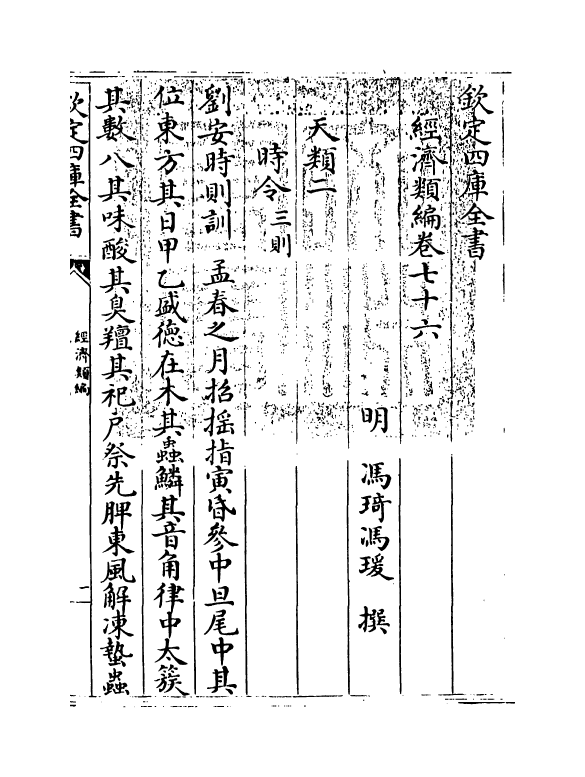 欽定四庫全書
經濟類編卷七十六
明 馮琦馮瑗 撰
天類二
時令三則
劉安時則訓 孟春之月招搖指寅昏參中旦尾中其
位東方其日甲乙盛德在木其蟲鱗其音角律中太簇
其數八其味酸其臭羶其祀戶祭先脾東風解凍蟄蟲
欽定四庫全書
經濟類編